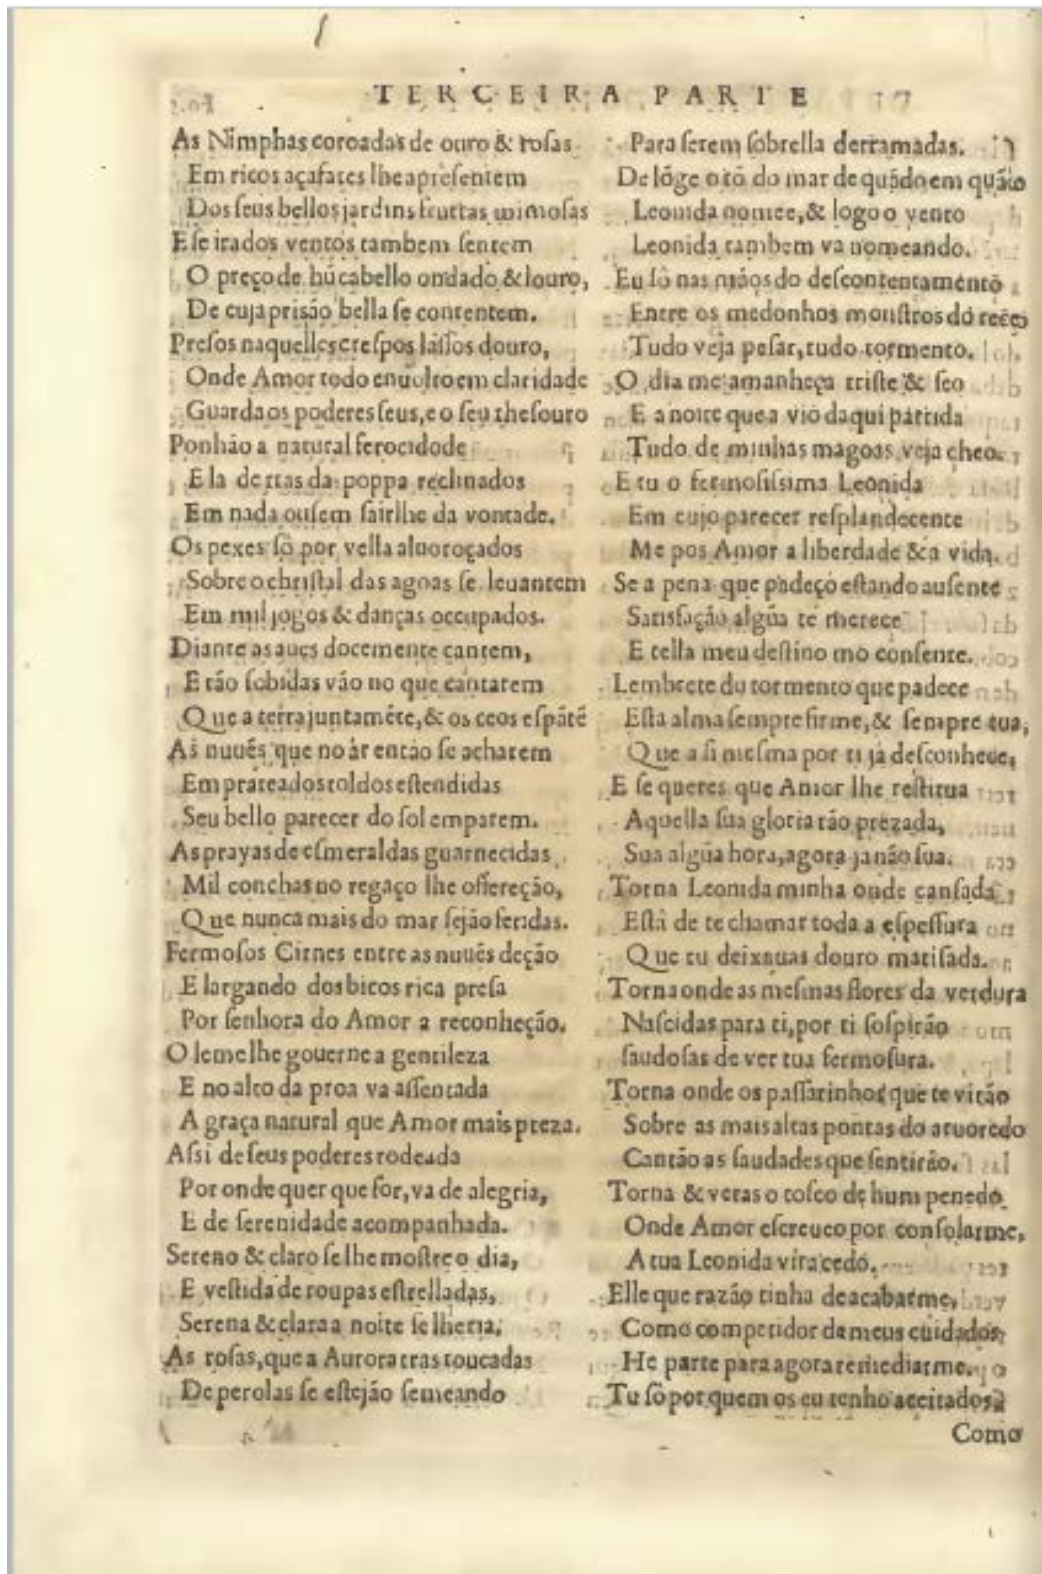 TERCEIRA PARTE
As Nimphas coroadas de ouro & rosas
Em ricos açafates lhe apresentem
Dos seus bellos jardins fruttas mimosas
E se irados ventos tambem sentem
O preço de hũ cabello ondado & louro,
De cuja prisão bella se contentem.
Presos naquelles crespos lassos douro,
Onde Amor todo enuolto em claridade
Guarda os poderes seus, e o seu thesouro
Ponhão a natural ferocidode
E la detras da poppa reclinados
Em nada ousem sairlhe da vontade.
Os pexes sò por vella aluoroçados
Sobre o christal das agoas se leuantem
Em mil jogos & danças occupados.
Diante as aues docemente cantem,
E tão sobidas vão no que cantarem
Que a terra juntamẽte, & os ceos espãtẽ
As nuuẽs que no àr então se acharem
Em prateados toldos estendidas
Seu bello parecer do sol emparem.
As prayas de esmeraldas guarnecidas
Mil conchas no regaço lhe offereção,
Que nunca mais do mar sejão feridas.
Fermosos Cirnes entre as nuuẽs deção
E largando dos bicos rica presa
Por senhora do Amor a reconheção.
O leme lhe gouerne a gentileza
E no alto da proa va assentada
A graça natural que Amor mais preza.
Assi de seus poderes rodeada
Por onde quer que for, va de alegria,
E de serenidade acompanhada.
Sereno & claro se lhe mostre o dia,
E vestida de roupas estrelladas,
Serena & clara a noite se lhe ria,
As rosas, que a Aurora tras toucadas
De perolas se estejão semeando
Para serem sobrella derramadas.
De lõge o tõ do mar de quãdo em quãto
Leonida nomee, & logo o vento
Leonida tambem va nomeando.
Eu sò nas mãos do descontentamento
Entre os medonhos monstros do receo
Tudo veja pesar, tudo tormento.
O dia me amanheça triste & feo
E a noite que a vio daqui partida
Tudo de minhas magoas veja cheo.
E tu o fermosissima Leonida
Em cujo parecer resplandecente
Me pos Amor a liberdade & a vida.
Se a pena que padeço estando ausente
Satisfação algũa te merece
E tella meu destino mo consente.
Lembrete do tormento que padece
Esta alma sempre firme, & sempre tua,
Que a si mesma por ti já desconhece,
E se queres que Amor lhe restitua
Aquella sua gloria tão prezada,
Sua algũa hora, agora ja não sua.
Torna Leonida minha onde cansada
Està de te chamar toda a espessura
Que tu deixauas douro matisada.
Torna onde as mesmas flores da verdura
Nascidas para ti, por ti sospirão
saudosas de ver tua fermosura.
Torna onde os passarinhos que te virão
Sobre as mais altas pontas do aruoredo
Cantão as saudades que sentirão.
Torna & veras o tosco de hum penedo
Onde Amor escreueo por consolarme,
A tua Leonida vira cedo.
Elle que razão tinha de acabarme,
Como competidor de meus cuidados
He parte para agora remediarme.
Tu sò por quem os eu tenho aceitados
Como